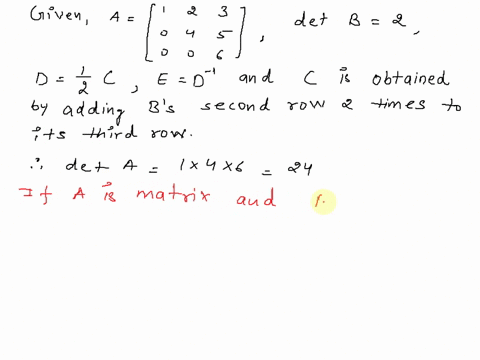 Given, A = [1 2 3 0 4 5 0 0 6], det B = 2,
D = 1/2 C, E = D⁻¹ and C is obtained
by adding B's second row 2 times to
its third row.
∴ det A = 1 × 4 × 6 = 24
If A is matrix and